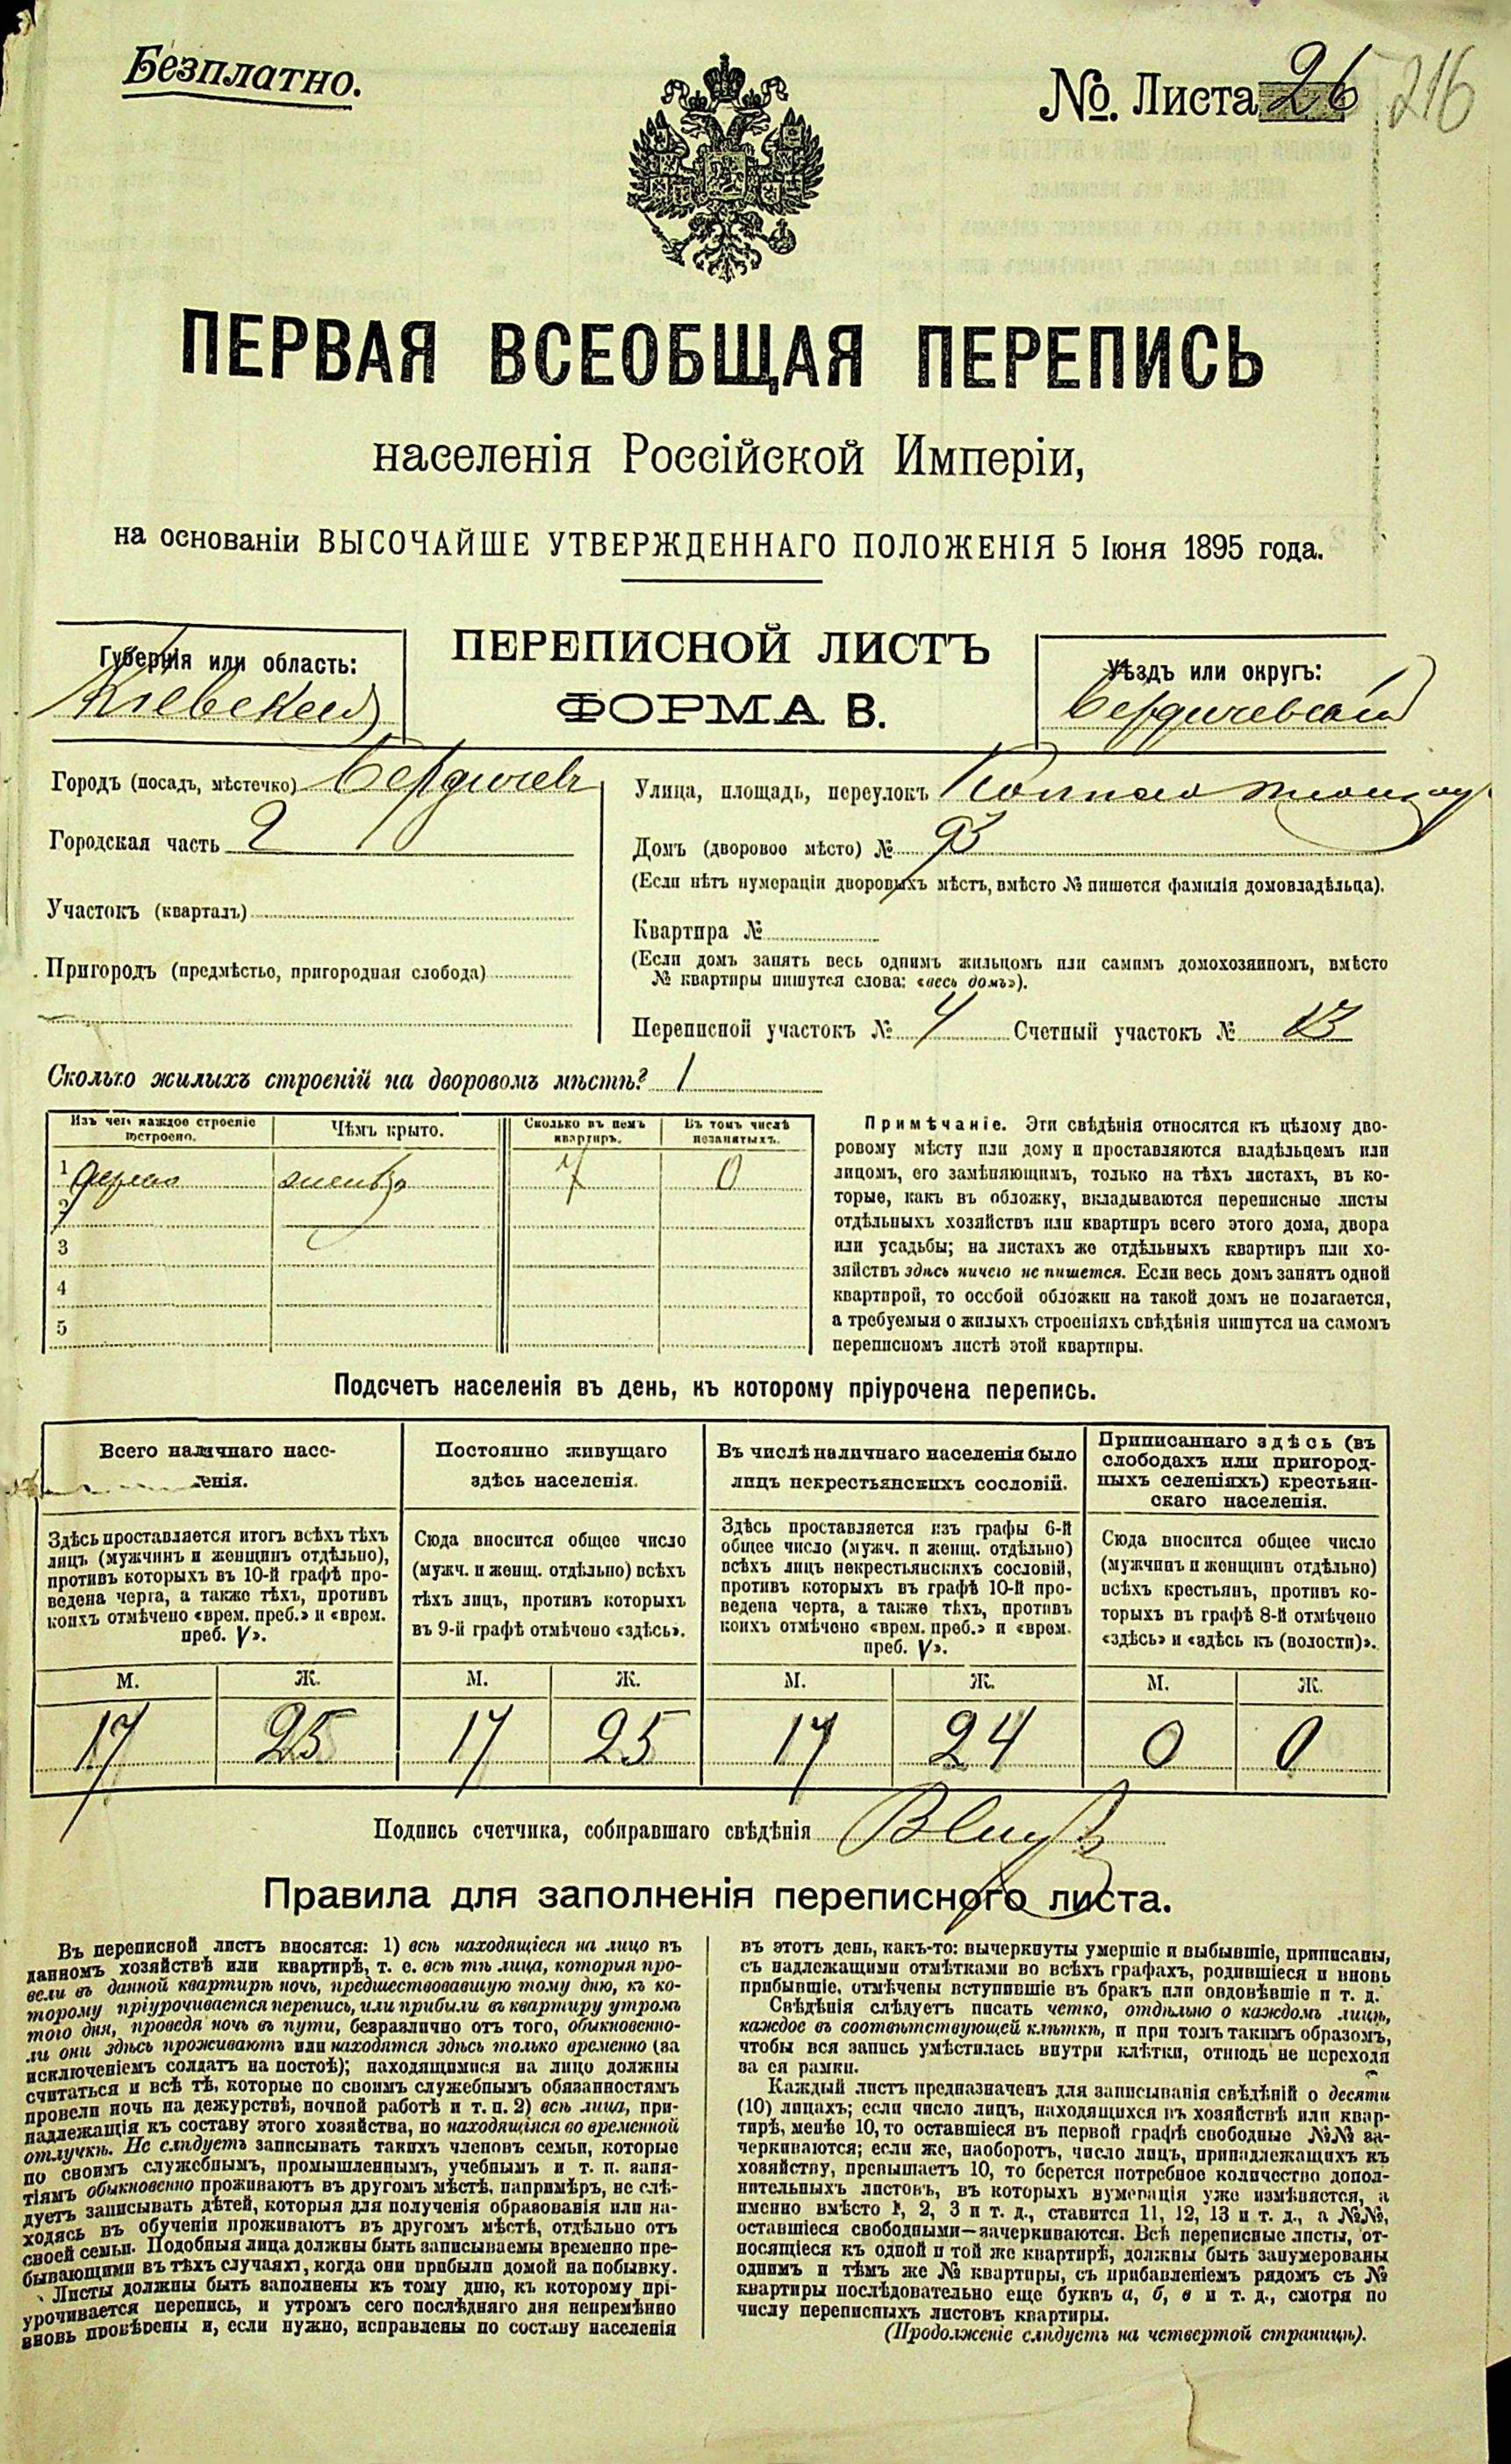 Безплатно.
№. Листа 26 216
ПЕРВАЯ ВСЕОБЩАЯ ПЕРЕПИСЬ
населенія Россійской Имперіи,
на основаніи ВЫСОЧАЙШЕ УТВЕРЖДЕННАГО ПОЛОЖЕНІЯ 5 Іюня 1895 года.
ПЕРЕПИСНОЙ ЛИСТЪ
ФОРМА В.
Губернія или область:
Кіевская
Уѣздъ или округъ:
Бердичевскій
Городъ (посадъ, мѣстечко) Бердичевъ
Городская часть 2
Участокъ (кварталъ)
Пригородъ (предмѣстье, пригородная слобода)
Улица, площадь, переулокъ
Домъ (дворовое мѣсто) № 93
(Если нѣтъ нумераціи дворовыхъ мѣстъ, вмѣсто № пишется фамилія домовладѣльца).
Квартира №
(Если домъ занятъ весь однимъ жильцомъ или самимъ домохозяиномъ, вмѣсто
№ квартиры пишутся слова: «весь домъ»).
Переписной участокъ № 4 Счетный участокъ № 13
Сколько жилыхъ строеній на дворовомъ мѣстѣ? 1
Изъ чего каждое строеніе
построено.
Чѣмъ крыто.
Сколько въ немъ
квартиръ.
Въ томъ числѣ
незанятыхъ.
1 дерево 7 0
2
3
4
5
Примѣчаніе. Эти свѣдѣнія относятся къ цѣлому дво-
ровому мѣсту или дому и проставляются владѣльцемъ или
лицомъ, его замѣняющимъ, только на тѣхъ листахъ, въ ко-
торые, какъ въ обложку, вкладываются переписные листы
отдѣльныхъ хозяйствъ или квартиръ всего этого дома, двора
или усадьбы; на листахъ же отдѣльныхъ квартиръ или хо-
зяйствъ здѣсь ничего не пишется. Если весь домъ занятъ одной
квартирой, то особой обложки на такой домъ не полагается,
а требуемыя о жилыхъ строеніяхъ свѣдѣнія пишутся на самомъ
переписномъ листѣ этой квартиры.
Подсчетъ населенія въ день, къ которому пріурочена перепись.
Всего наличнаго насе-
ленія.
Здѣсь проставляется итогъ всѣхъ тѣхъ
лицъ (мужчинъ и женщинъ отдѣльно),
противъ которыхъ въ 10-й графѣ про-
ведена черта, а также тѣхъ, противъ
коихъ отмѣчено «врем. преб.» и «врем.
преб. V».
Постоянно живущаго
здѣсь населенія.
Сюда вносится общее число
(мужч. и женщ. отдѣльно) всѣхъ
тѣхъ лицъ, противъ которыхъ
въ 9-й графѣ отмѣчено «здѣсь».
Въ числѣ наличнаго населенія было
лицъ некрестьянскихъ сословій.
Здѣсь проставляется изъ графы 6-й
общее число (мужч. и женщ. отдѣльно)
всѣхъ лицъ некрестьянскихъ сословій,
противъ которыхъ въ графѣ 10-й про-
ведена черта, а также тѣхъ, противъ
коихъ отмѣчено «врем. преб.» и «врем.
преб. V».
Приписаннаго здѣсь (въ
слободахъ или пригород-
ныхъ селеніяхъ) крестьян-
скаго населенія.
Сюда вносится общее число
(мужчинъ и женщинъ отдѣльно)
всѣхъ крестьянъ, противъ ко-
торыхъ въ графѣ 8-й отмѣчено
«здѣсь» и «здѣсь къ (волости)».
М. Ж. М. Ж. М. Ж. М. Ж.
17 25 17 25 17 24 0 0
Подпись счетчика, собиравшаго свѣдѣнія
Правила для заполненія переписного листа.
Въ переписной листъ вносятся: 1) всѣ находящіеся на лицо въ
данномъ хозяйствѣ или квартирѣ, т. е. всѣ тѣ лица, которыя про-
вели въ данной квартирѣ ночь, предшествовавшую тому дню, къ ко-
торому пріурочивается перепись, или прибыли въ квартиру утромъ
того дня, проведя ночь въ пути, безразлично отъ того, обыкновенно-
ли они здѣсь проживаютъ или находятся здѣсь только временно (за
исключеніемъ солдатъ на постоѣ); находящимися на лицо должны
считаться и всѣ тѣ, которые по своимъ служебнымъ обязанностямъ
провели ночь на дежурствѣ, ночной работѣ и т. п. 2) всѣ лица, при-
надлежащія къ составу этого хозяйства, но находящіяся во временной
отлучкѣ. Не слѣдуетъ записывать такихъ членовъ семьи, которые
по своимъ служебнымъ, промышленнымъ, учебнымъ и т. п. заня-
тіямъ обыкновенно проживаютъ въ другомъ мѣстѣ, напримѣръ, не слѣ-
дуетъ записывать дѣтей, которыя для полученія образованія или на-
ходясь въ обученіи проживаютъ въ другомъ мѣстѣ, отдѣльно отъ
своей семьи. Подобныя лица должны быть записываемы временно пре-
бывающими въ тѣхъ случаяхъ, когда они прибыли домой на побывку.
Листы должны быть заполнены къ тому дню, къ которому прі-
урочивается перепись, и утромъ сего послѣдняго дня непремѣнно
вновь провѣрены и, если нужно, исправлены по составу населенія
въ этотъ день, какъ-то: вычеркнуты умершіе и выбывшіе, приписаны,
съ надлежащими отмѣтками во всѣхъ графахъ, родившіеся и вновь
прибывшіе, отмѣчены вступившіе въ бракъ или овдовѣвшіе и т. д.
Свѣдѣнія слѣдуетъ писать четко, отдѣльно о каждомъ лицѣ,
каждое въ соотвѣтствующей клѣткѣ, и при томъ такимъ образомъ,
чтобы вся запись умѣстилась внутри клѣтки, отнюдь не переходя
за ея рамки.
Каждый листъ предназначенъ для записыванія свѣдѣній о десяти
(10) лицахъ; если число лицъ, находящихся въ хозяйствѣ или квар-
тирѣ, менѣе 10, то оставшіеся въ первой графѣ свободные №№ за-
черкиваются; если же, наоборотъ, число лицъ, принадлежащихъ къ
хозяйству, превышаетъ 10, то берется потребное количество допол-
нительныхъ листовъ, въ которыхъ нумерація уже измѣняется, а
именно вмѣсто 1, 2, 3 и т. д., ставится 11, 12, 13 и т. д., а №№,
оставшіеся свободными—зачеркиваются. Всѣ переписные листы, от-
носящіеся къ одной и той же квартирѣ, должны быть занумерованы
однимъ и тѣмъ же № квартиры, съ прибавленіемъ рядомъ съ №
квартиры послѣдовательно еще буквъ а, б, в и т. д., смотря по
числу переписныхъ листовъ квартиры.
(Продолженіе слѣдуетъ на четвертой страницѣ).